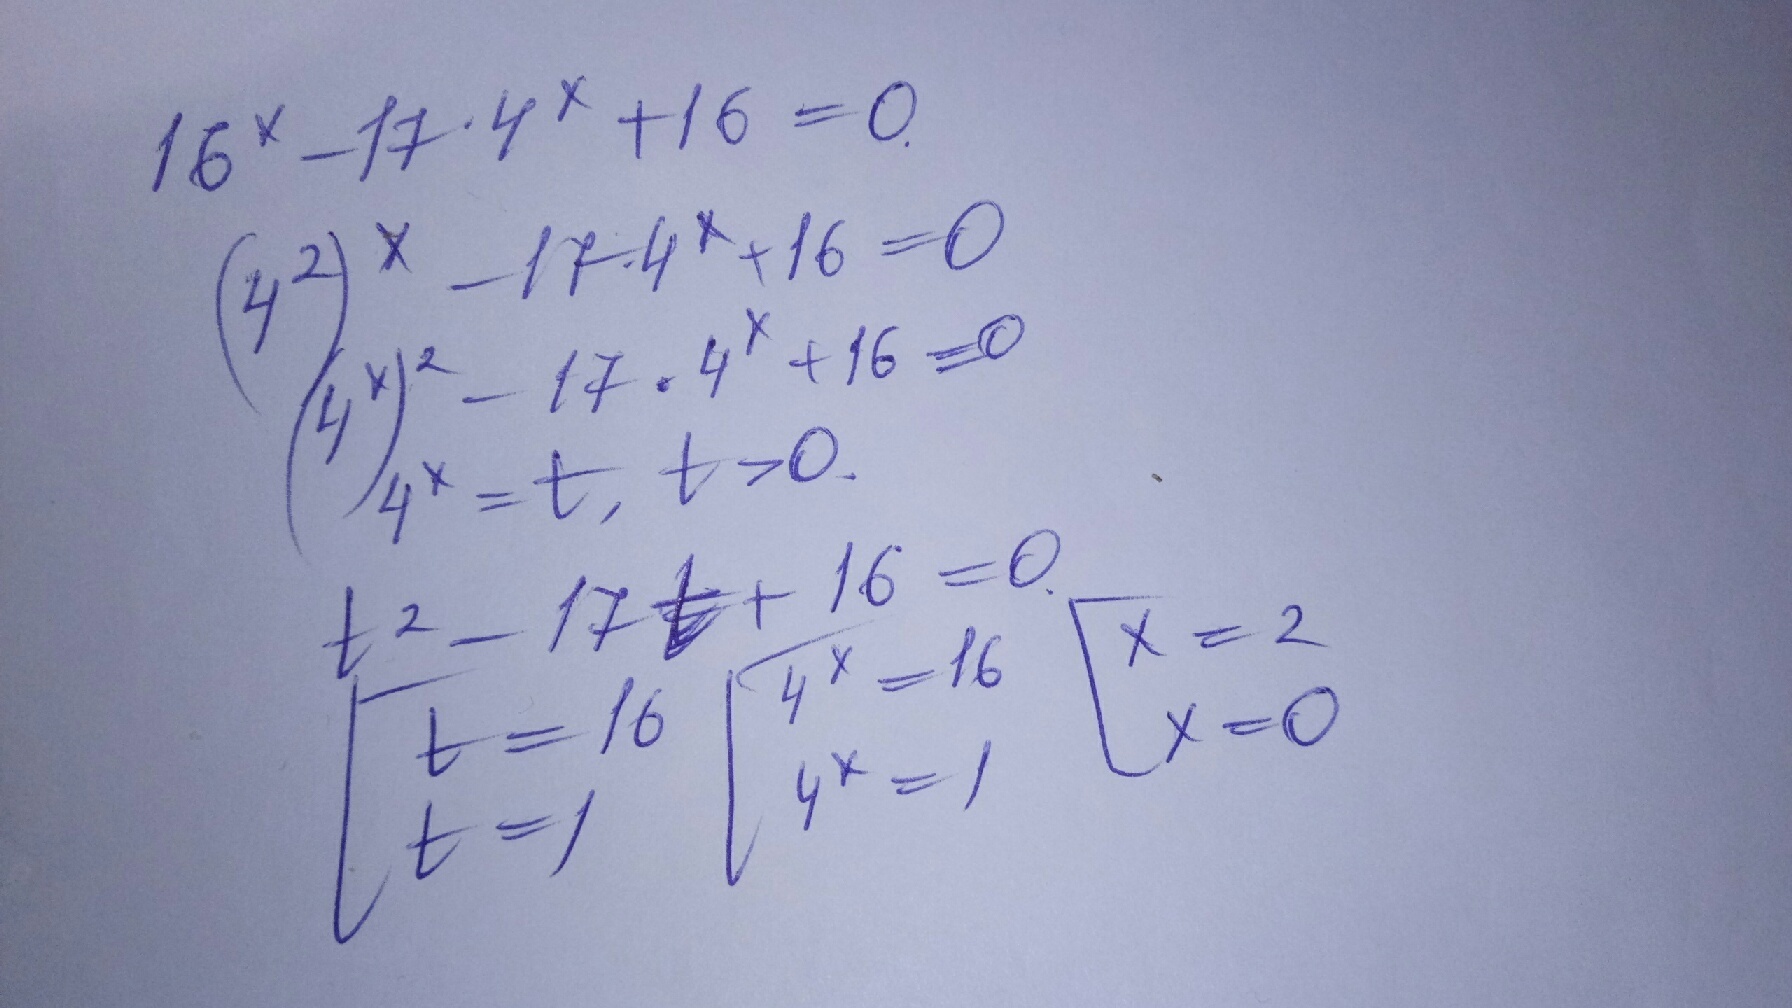 16ˣ – 17 · 4ˣ + 16 = 0.
(4²)ˣ – 17 · 4ˣ + 16 = 0
(4ˣ)² – 17 · 4ˣ + 16 = 0
4ˣ = t, t > 0.
t² – 17t + 16 = 0.
[ t = 16 [ 4ˣ = 16 [ x = 2
t = 1 4ˣ = 1 x = 0